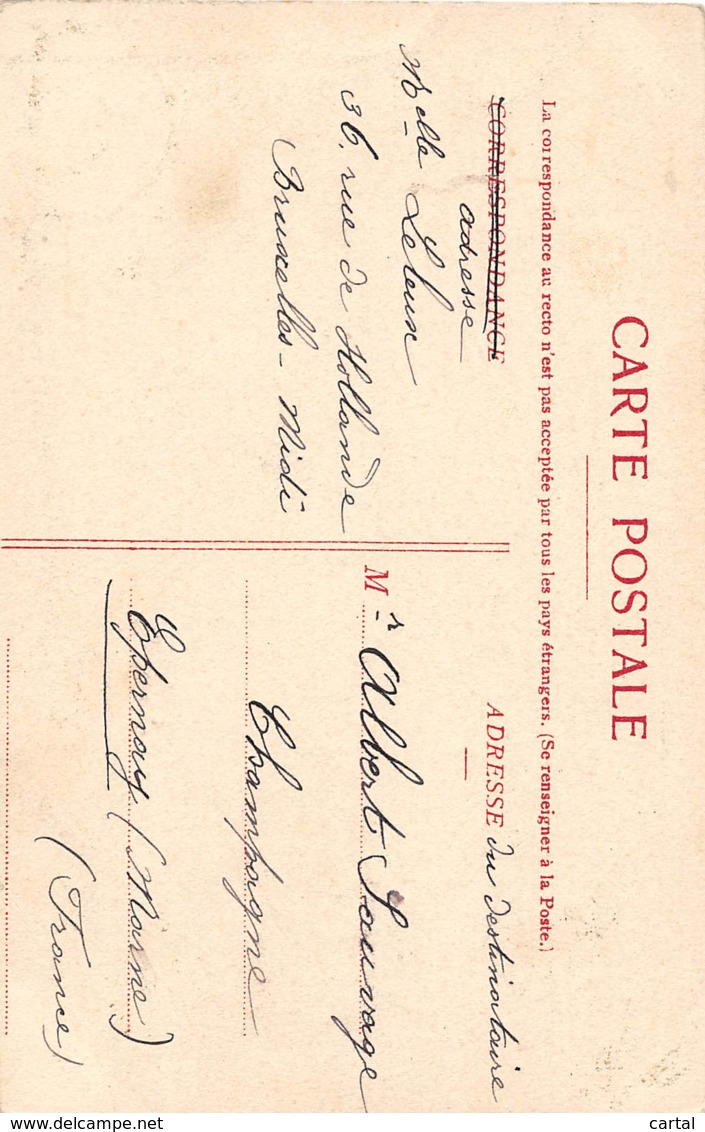 CARTE POSTALE
La correspondance au recto n'est pas acceptée par tous les pays étrangers. (Se renseigner à la Poste.)
CORRESPONDANCE
adresse
Melle Leleux
36, rue de Hollande
Bruxelles - Midi
ADRESSE du destinataire
Mr Albert Sauvage
Champagne
Epernay (Marne)
(France)
www.delcampe.net
cartal